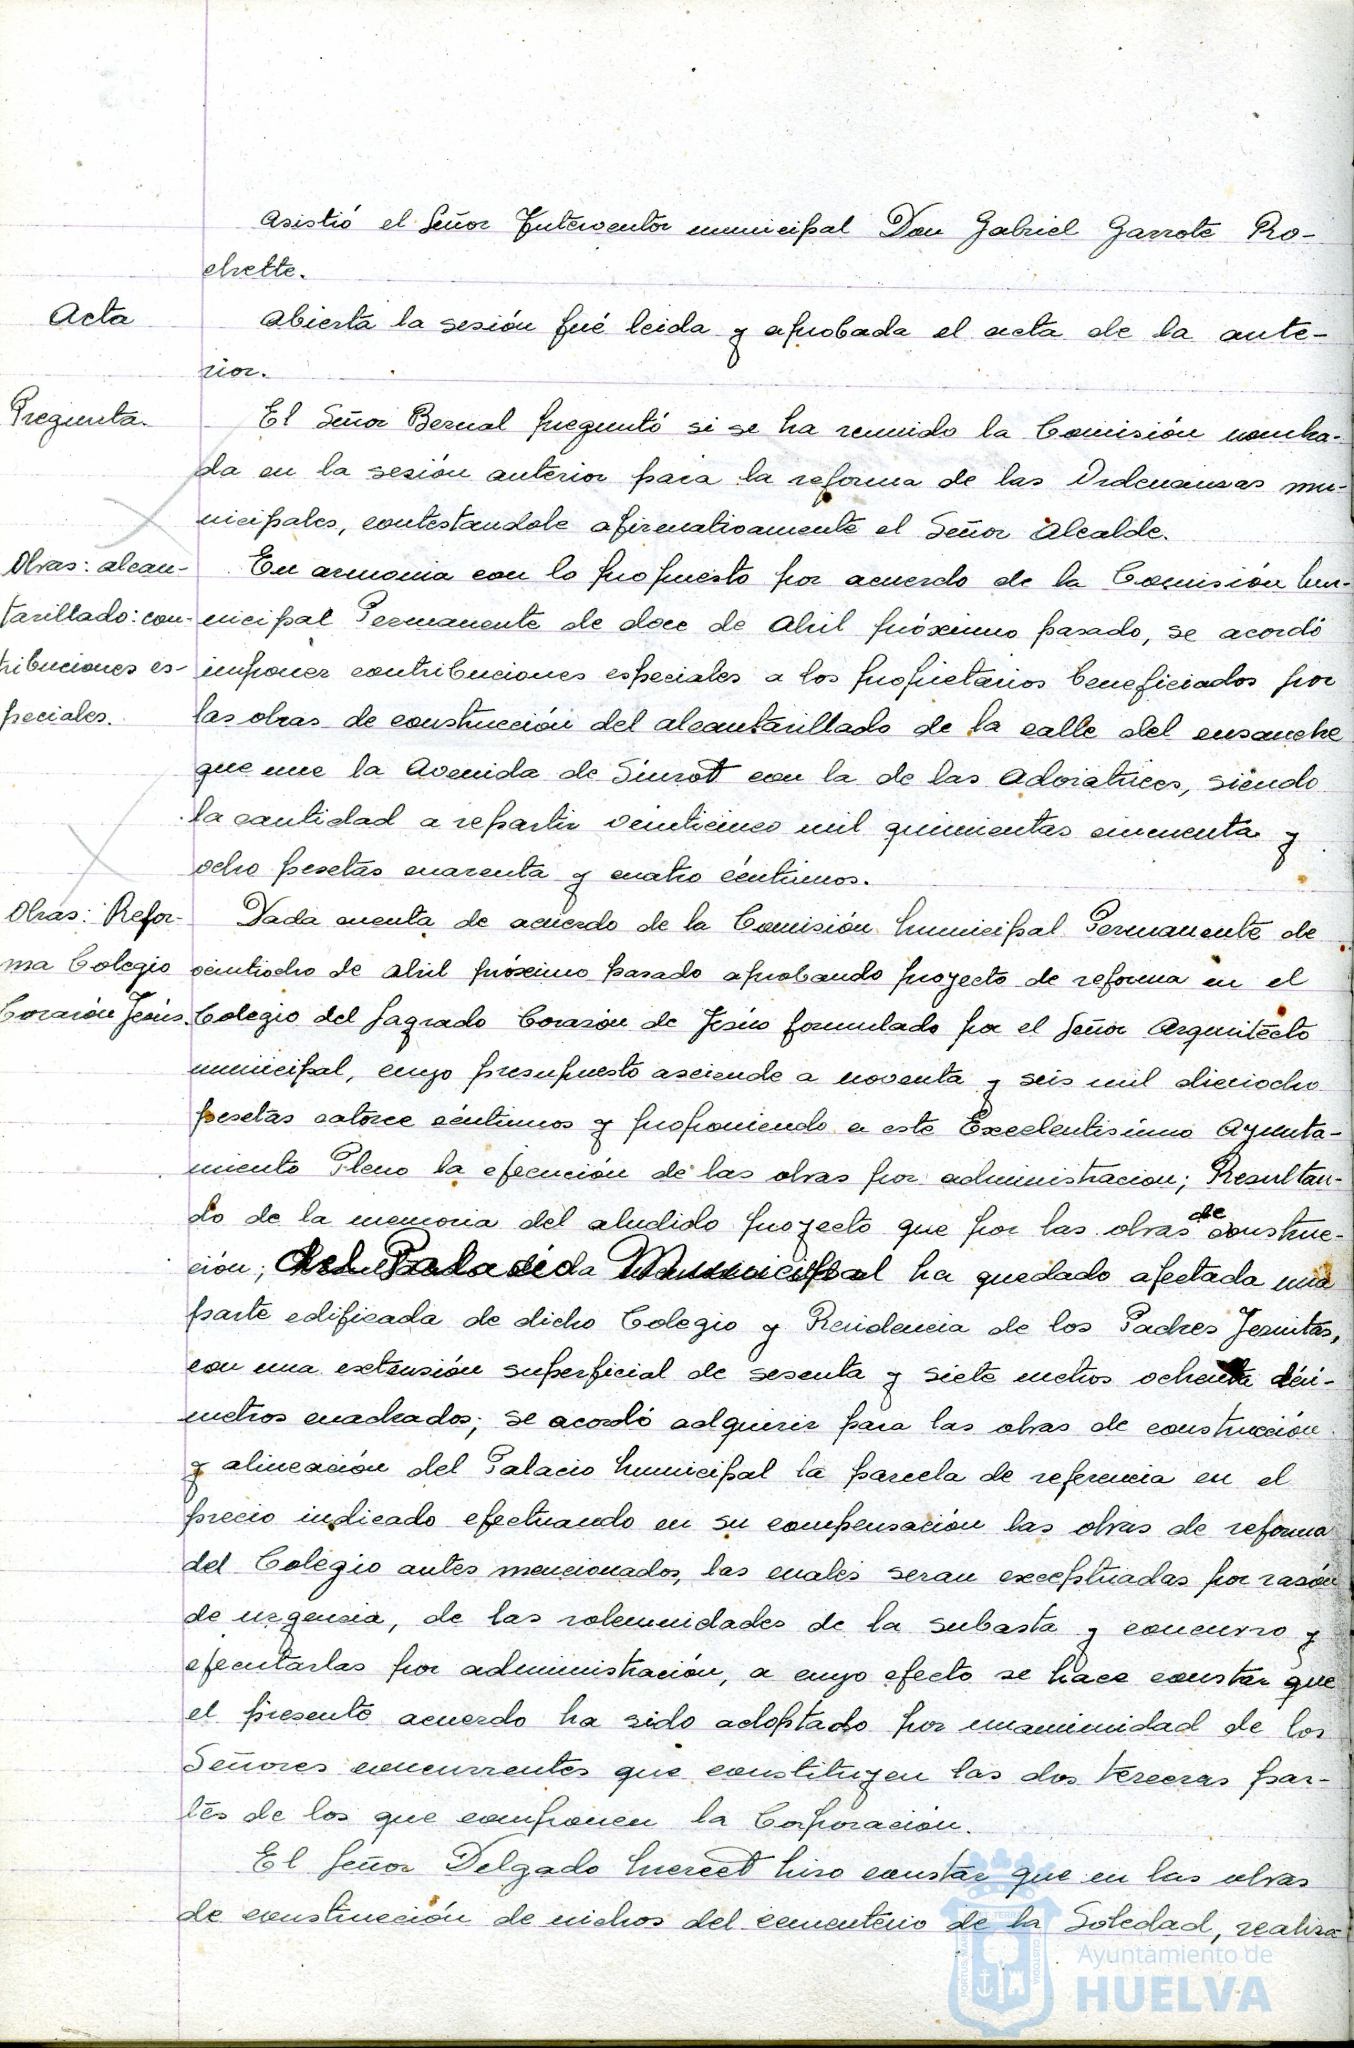 Asistió el Señor Interventor municipal Don Gabriel Garrote Ro-
chette.
Acta
Abierta la sesión fué leida y aprobada el acta de la ante-
rior.
Pregunta.
El Señor Bernal preguntó si se ha reunido la Comisión nombra-
da en la sesión anterior para la reforma de las Ordenanzas mu-
nicipales, contestandole afirmativamente el Señor Alcalde.
Obras: alcan-
tarillado: con-
tribuciones es-
peciales.
En armonia con lo propuesto por acuerdo de la Comisión Mu-
nicipal Permanente de doce de Abril próximo pasado, se acordó
imponer contribuciones especiales a los propietarios beneficiados por
las obras de construcción del alcantarillado de la calle del ensanche
que une la Avenida de Siurot con la de las Adoratrices, siendo
la cantidad a repartir veinticinco mil quinientas cincuenta y
ocho pesetas cuarenta y cuatro céntimos.
Obras: Refor-
ma Colegio
Corazón Jesús.
Dada cuenta de acuerdo de la Comisión Municipal Permanente de
veintiocho de Abril próximo pasado aprobando proyecto de reforma en el
Colegio del Sagrado Corazón de Jesús formulado por el Señor Arquitecto
municipal, cuyo presupuesto asciende a noventa y seis mil dieciocho
pesetas catorce céntimos y proponiendo a este Excelentísimo Ayunta-
miento Pleno la ejecución de las obras por administracion; Resultan-
do de la memoria del aludido proyecto que por las obras de construc-
ción; del Palacio Municipal ha quedado afectada una
parte edificada de dicho Colegio y Residencia de los Padres Jesuitas,
con una extensión superficial de sesenta y siete metros ochenta decí-
metros cuadrados; se acordó adquirir para las obras de construcción
y alineación del Palacio Municipal la parcela de referencia en el
precio indicado efectuando en su compensación las obras de reforma
del Colegio antes mencionados, las cuales seran exceptuadas por razón
de urgencia, de las solemnidades de la subasta y concurso y
ejecutarlas por administración, a cuyo efecto se hace constar que
el presente acuerdo ha sido adoptado por unanimidad de los
Señores concurrentes que constituyen las dos terceras par-
tes de los que componen la Corporación.
El Señor Delgado Mercet hizo constar que en las obras
de construcción de nichos del cementerio de la Soledad, realiza-
Ayuntamiento de
HUELVA